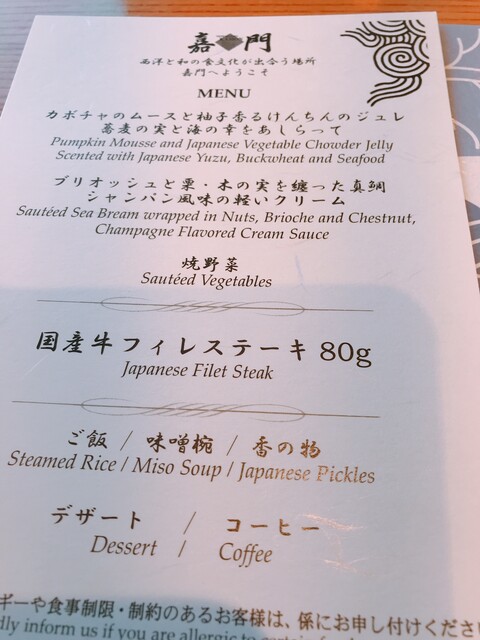 嘉門
西洋と和の食文化が出合う場所
嘉門へようこそ
MENU
カボチャのムースと柚子香るけんちんのジュレ
蕎麦の実と海の幸をあしらって
Pumpkin Mousse and Japanese Vegetable Chowder Jelly
Scented with Japanese Yuzu, Buckwheat and Seafood
ブリオッシュと栗・木の実を纏った真鯛
シャンパン風味の軽いクリーム
Sautéed Sea Bream wrapped in Nuts, Brioche and Chestnut,
Champagne Flavored Cream Sauce
焼野菜
Sautéed Vegetables
国産牛フィレステーキ 80g
Japanese Filet Steak
ご飯 / 味噌椀 / 香の物
Steamed Rice / Miso Soup / Japanese Pickles
デザート / コーヒー
Dessert / Coffee
ギーや食事制限・制約のあるお客様は、係にお申し付けくださ
dly inform us if you are allergic to certain